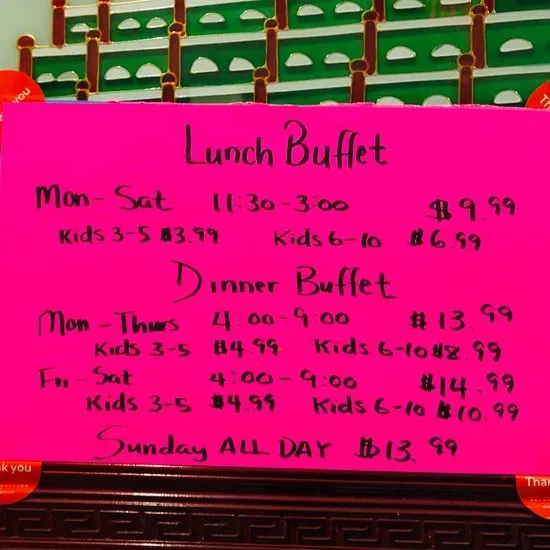 Lunch Buffet
Mon - Sat 11:30 - 3:00 $9.99
Kids 3-5 $3.99 Kids 6-10 $6.99
Dinner Buffet
Mon - Thurs 4:00 - 9:00 $13.99
Kids 3-5 $4.99 Kids 6-10 $8.99
Fri - Sat 4:00 - 9:00 $14.99
Kids 3-5 $4.99 Kids 6-10 $10.99
Sunday ALL DAY $13.99
you
k you
Than